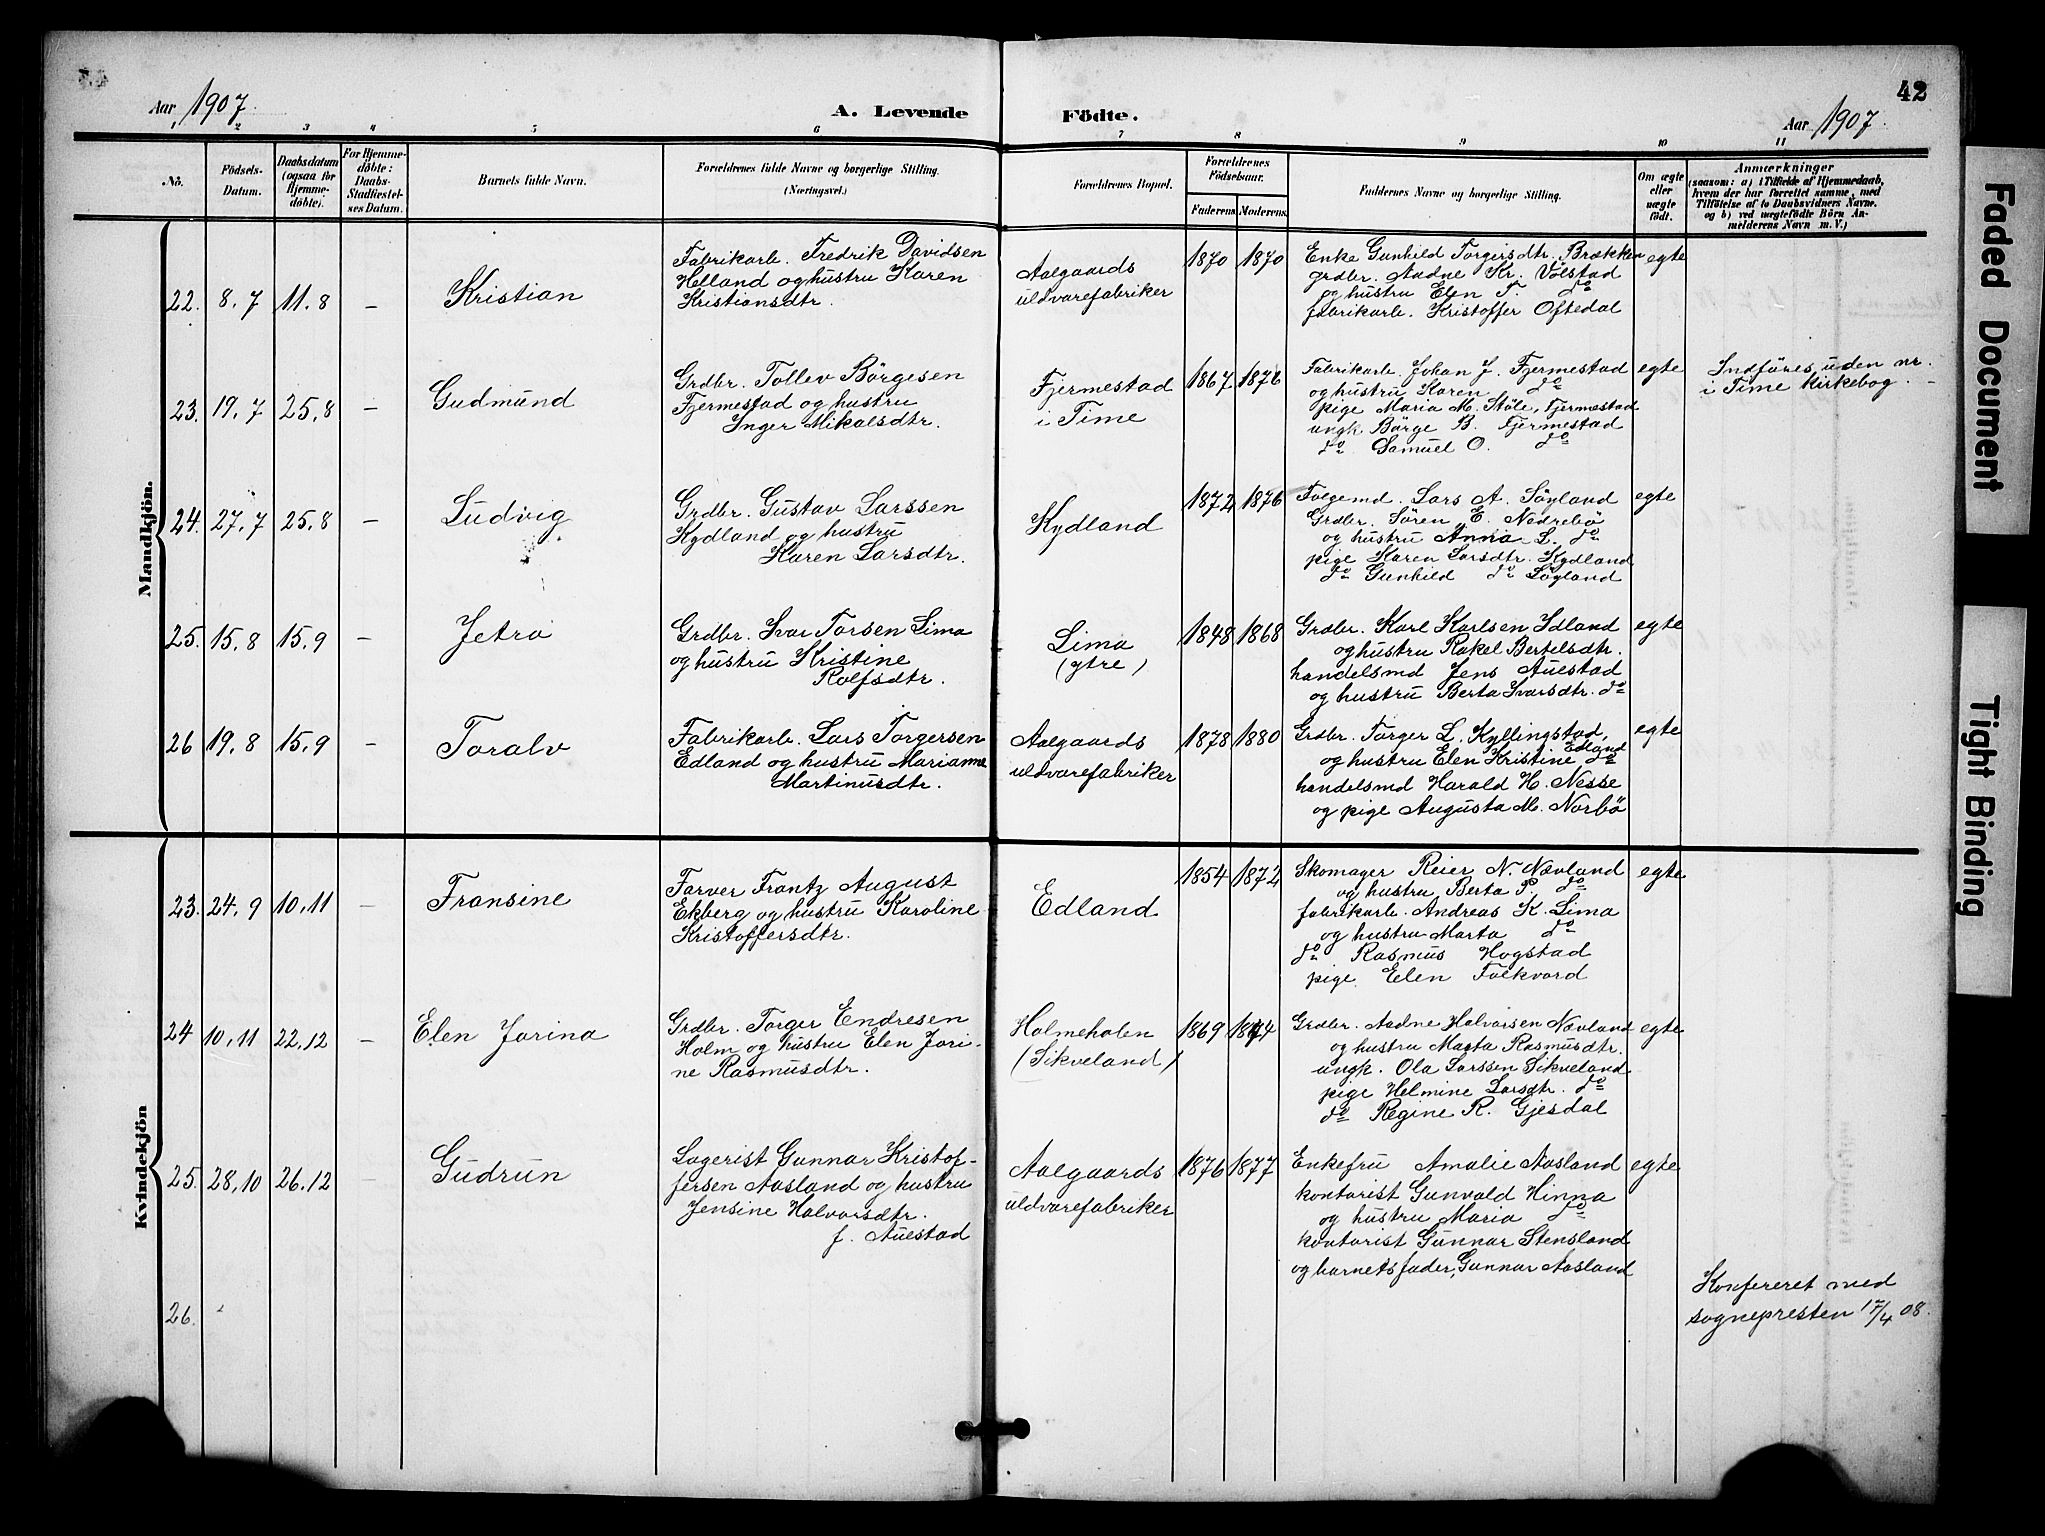 42
Aar 1907.
A. Levende Födte.
Aar 1907.
1 2 3 4 5 6 7 8 9 10 11
No.
Födsels-
Datum.
Daabsdatum
(ogsaa for
Hjemme-
döbte).
For Hjemme-
döbte:
Daabs-
Stadfæstel-
ses Datum.
Barnets fulde Navn.
Forældrenes fulde Navne og borgerlige Stilling.
(Næringsvei.)
Forældrenes Bopæl.
Forældrenes
Födselsaar.
Faderens. Moderens.
Faddernes Navne og borgerlige Stilling.
Om ægte
eller
uægte
födt.
Anmærkninger
(saasom: a) i Tilfælde af Hjemmedaab,
hvem der har forrettet samme, med
Tilföielse af to Daabsvidners Navne.
og b) ved uægtefödte Börn An-
melderens Navn m. V.)
Mandkjön.
22. 8.7 11.8 –
Kristian
Fabrikarb. Fredrik Davidsen
Helland og hustru Karen
Kristiansdtr.
Aalgaards
uldvarefabriker
1870 1870
Enke Gunhild Torgirsdtr. Brækken
grdbr. Aadne Kr. Vølstad
og hustru Elen T. do
fabrikarb. Kristoffer Oftedal
egte
23. 19.7 25.8 –
Gudmund
Grdbr. Tollev Börgesen
Fjermestad og hustru
Inger Mikalsdtr.
Fjermestad
i Time
1867 1876
Fabrikarb. Johan J. Fjermestad
og hustru Karen do
pige Maria M. Støle, Fjermestad
ungk Börge B. Fjermestad
do Samuel O. do
egte
Indföres uden nr.
i Time kirkebog. –
24. 27.7 25.8 –
Ludvig
Grdbr. Gustav Larssen
Kydland og hustru
Karen Larsdtr.
Kydland
1872 1876
Folgemd. Lars A. Söyland
Grdbr. Sören E. Nedrebö
og hustru Anna L. do
pige Karen Larsdtr. Kydland
do Gunhild do Söyland
egte
25. 15.8 15.9 –
Jetro
Grdbr. Ivar Torsen Lima
og hustru Kristine
Rolfsdtr.
Lima
(ytre)
1848 1868
Grdbr. Karl Karlsen Idland
og hustru Rakel Bertelsdtr.
handelsmd Jens Auestad
og hustru Berta Ivarsdtr. do
egte
26 19.8 15.9 –
Toralv
Fabrikarb. Lars Torgersen
Edland og hustru Marianne
Martinusdtr.
Aalgaards
uldvarefabriker
1878 1880
Grdbr. Torger L. Kyllingstad,
Edland
og hustru Elen Kristine do
handelsmd Harald H. Nesse
og pige Augusta M. Norbö
egte
Kvindekjön
23. 24.9 10.11 –
Fransine
Farver Frantz August
Ekberg og hustru Karoline
Kristoffersdtr.
Edland
1854 1872
Skomager Reier N. Nævland
og hustru Berta P. do
fabrikarb. Andreas K. Lima
og hustru Marta do
do Rasmus Hogstad
pige Elen Folkvord
egte
24 10.11 22.12 –
Elen Jorina
Grdbr. Torger Endresen
Holm og hustru Elen Jori-
ne Rasmusdtr.
Holmeholen
(Sikveland)
1869 1874
Grdbr. Aadne Halvorsen Nævland
og hustru Marta Rasmusdtr.
ungk. Ola Larssen Sikveland
pige Helmine Larsdtr. do
do Regine R. Gjesdal
egte
25. 28.10 26.12 –
Gudrun
Lagerist Gunnar Kristof-
fersen Aasland og hustru
Jensine Halvorsdtr.
f. Auestad
Aalgaards
uldvarefabriker
1876 1877
Enkefru Amalie Aasland
kontorist Gunvald Hinna
og hustru Maria do
kontorist Gunnar Stensland
og barnets fader, Gunnar Aasland
egte
26.
Konfereret med
sognepresten 17/4 08.
Faded Document
Tight Binding